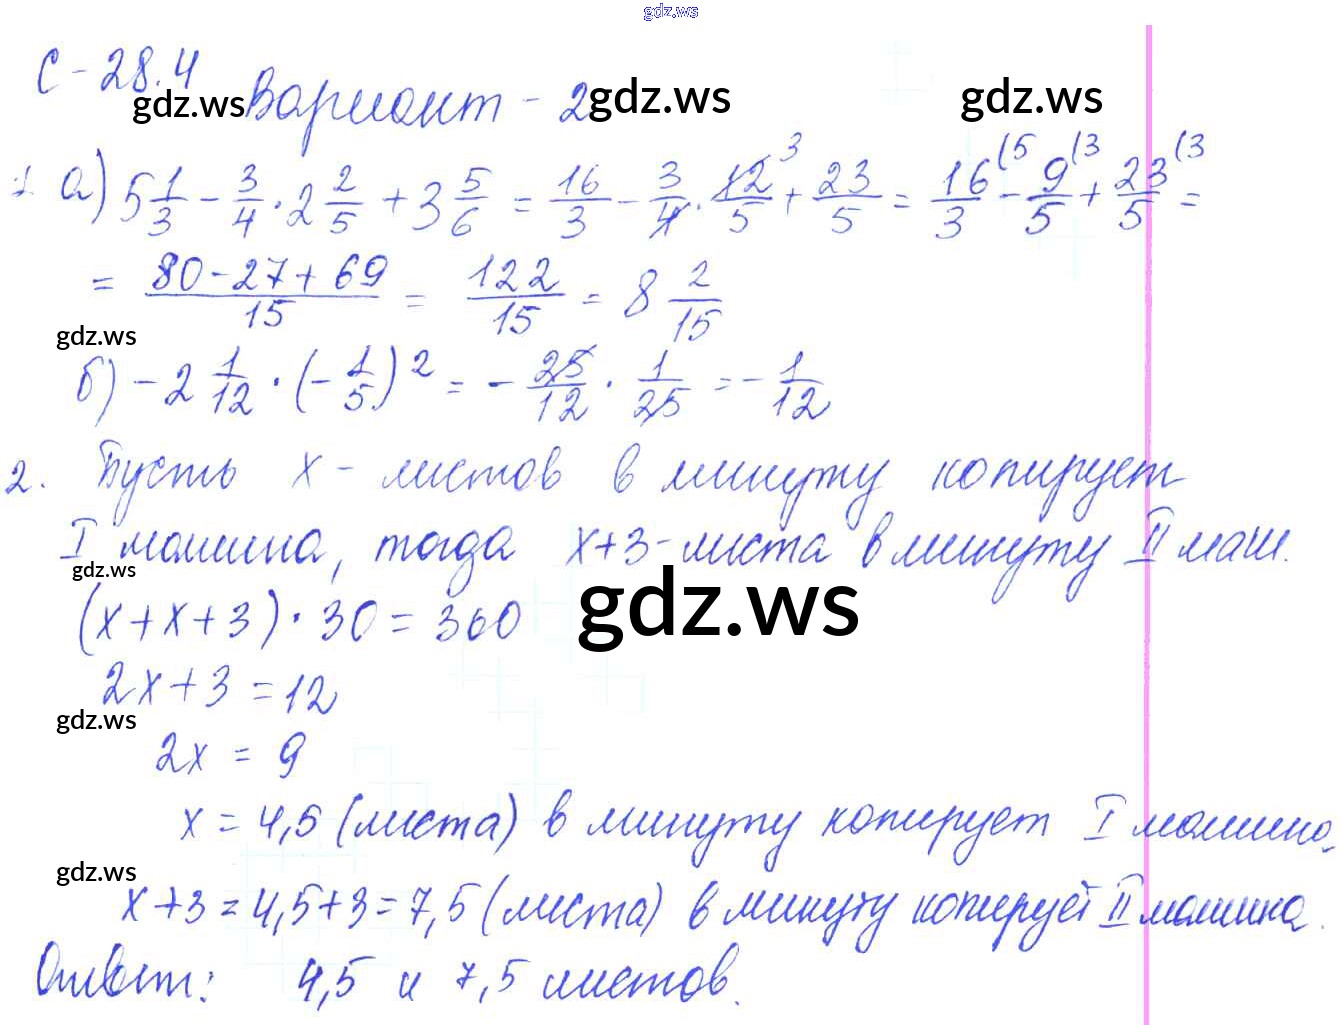 gdz.ws
С-28.4
gdz.ws Вариант - 2 gdz.ws gdz.ws
1 а) 5 1/3 - 3/4 · 2 2/5 + 3 5/6 = 16/3 - 3/4 · 12/5 (3 + 23/5 = 16/3 (5 - 9/5 (3 + 23/5 (3 =
= (80-27+69)/15 = 122/15 = 8 2/15
gdz.ws
б) -2 1/12 · (-1/5)² = - 25/12 · 1/25 = - 1/12
2. Пусть x - листов в минуту копирует
I машина, тогда x+3 - листа в минуту II маш.
gdz.ws
(x+x+3) · 30 = 360
gdz.ws
2x+3 = 12
gdz.ws
2x = 9
x = 4,5 (листа) в минуту копирует I машина,
gdz.ws
x+3 = 4,5+3 = 7,5 (листа) в минуту копирует II машина.
Ответ: 4,5 и 7,5 листов.